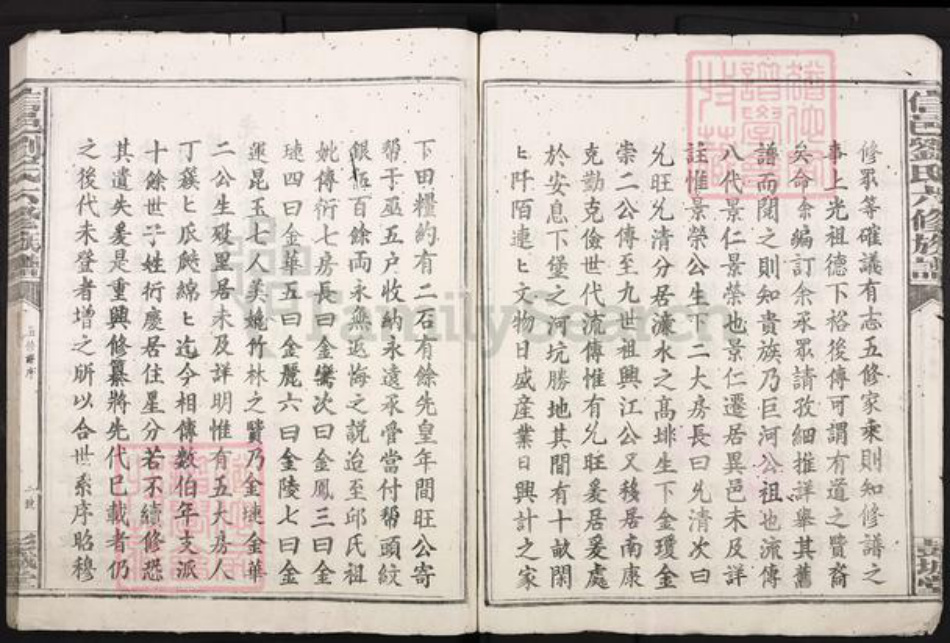 信邑劉氏六修族譜
修眾等確議有志五修家乘則知修譜之
事上光祖德下裕後傳可謂有道之賢裔
矣命余編訂余承眾請孜細推詳舉其舊
譜而閱之則知貴族乃巨河公祖也流傳
八代景仁景榮也景仁遷居異邑未及詳
註惟景榮公生下二大房長曰允清次曰
允旺允清分居濂水之高排生下金瓊金
崇二公傳至九世祖興江公又移居南康
克勤克儉世代流傳惟有允旺爰居爰處
於安息下堡之河坑勝地其間有十畝閑
匕阡陌連匕文物日盛産業日興計之家
下田糧約有二石有餘先皇年間旺公寄
幇于巫五户收納永遠承當當付幇頭紋
銀伍百餘両永無返悔之説迨至邱氏祖
妣傳衍七房長曰金鸞次曰金鳳三曰金
璉四曰金華五曰金麗六曰金陵七曰金
運昆玉七人美媲竹林之賢乃金璉金華
二公生殁里居未及詳明惟有五大房人
丁蔟匕瓜瓞綿匕迄今相傳數伯年支派
十餘世子姓衍慶居住星分若不續修恐
其遺失爰是重興修纂將先代已載者仍
之後代未登者增之斯以合世系序昭穆
五修譜序
二號
彭城堂
FamilySearch